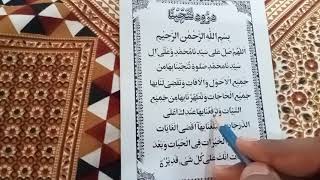 درود تنجینا
بسم الله الرحمن الرحیم
اللهم صل علی سیدنا محمد وعلی ال
سیدنا محمد صلوة تنجینا بها من
جمیع الاحوال والافات وتقضی لنا بها
جمیع الحاجات وتطهرنا بها من جمیع
السیات وترفعنا بها عندك اعلی
الدرجات وتبلغنا بها اقصی الغایات
الخیرات فی الحیات وبعد
انك علی کل شیء قدیر